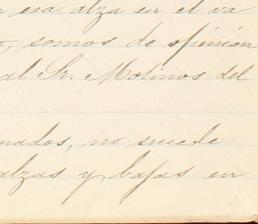 esa alza en el va
somos de opinión
al Sr. Molinos del
nados, no sucede
alzas y bajas en